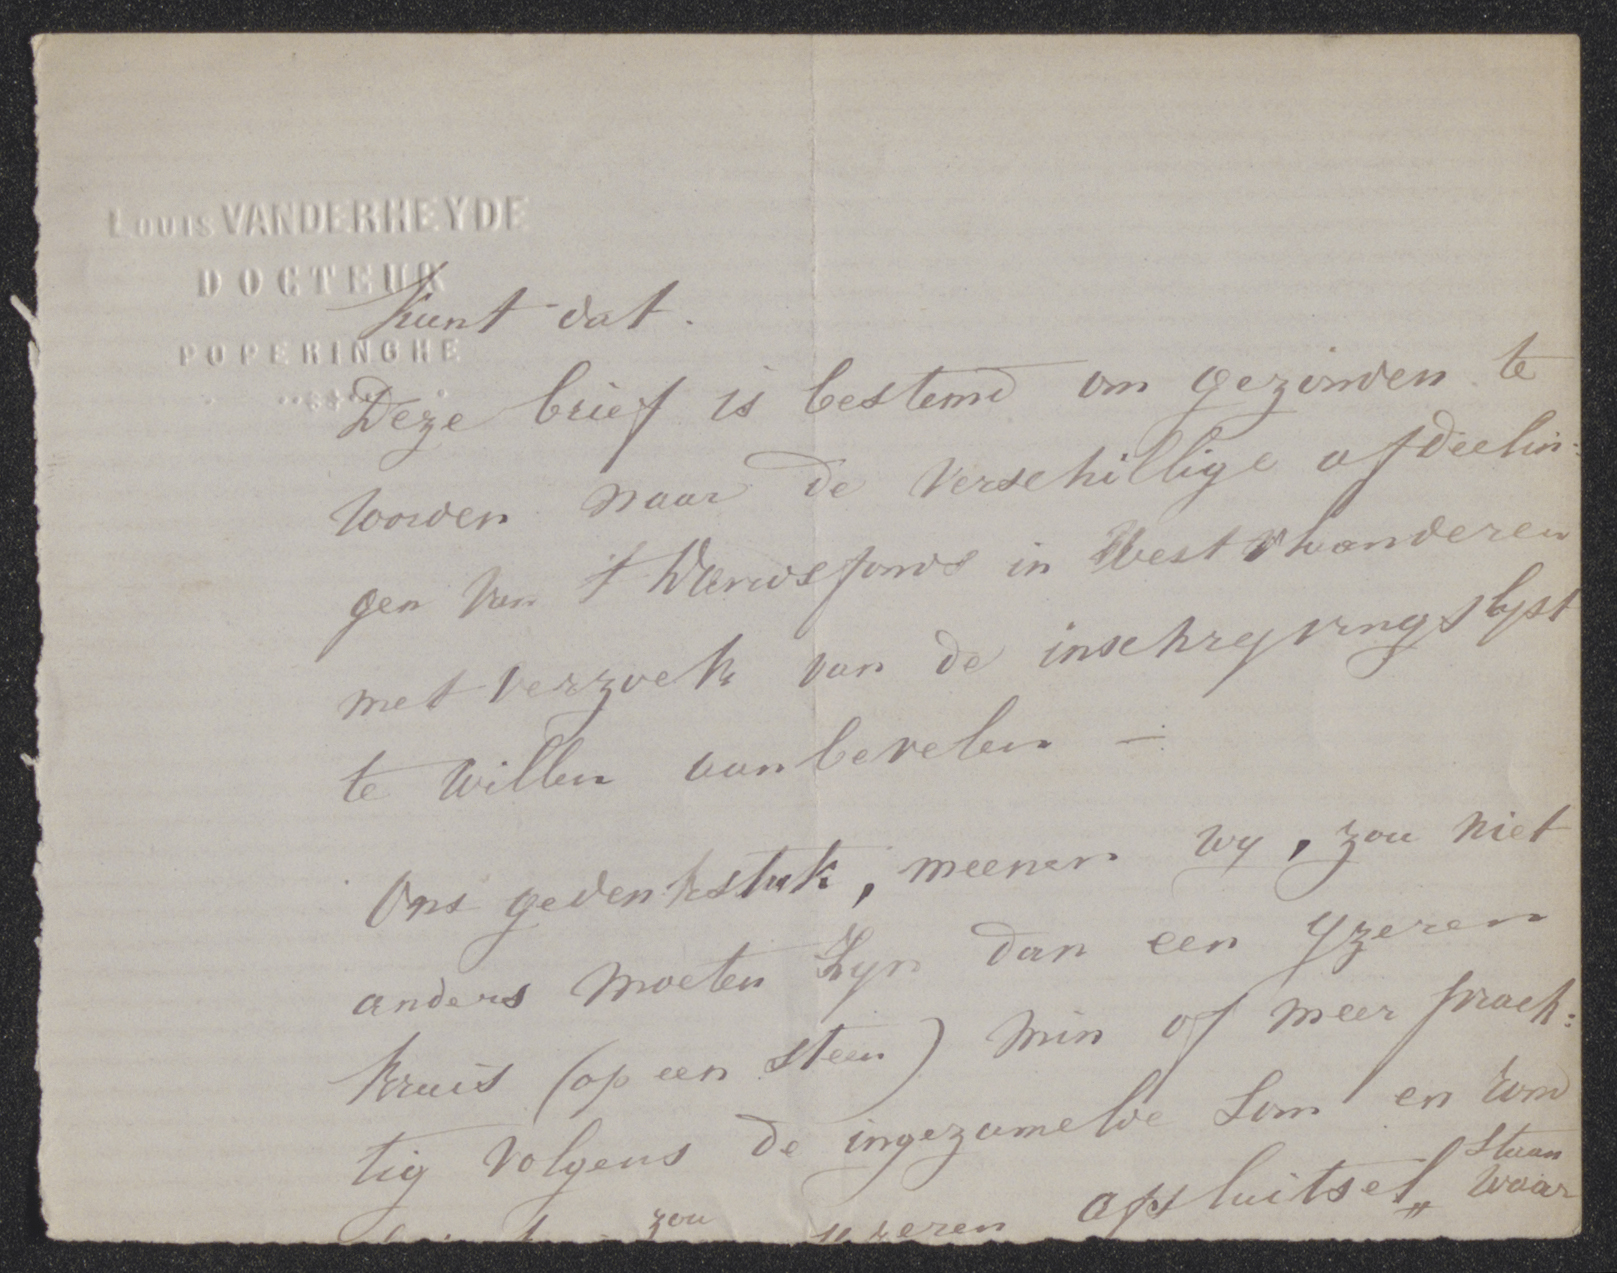 Louis VANDERHEYDE
DOCTEUR
POPERINGHE
kunt dat.
Deze brief is bestemd om gezonden te
worden naar de verschillige afdeelin:
gen van 't Davidsfonds in West Vlaanderen
met verzoek van de inschryvingslyst
te willen aanbevelen —
Ons gedenkstuk, meenen wy, zou niet
anders moeten zyn dan een yzeren
kruis (op een steen) min of meer prach:
tig volgens de ingezamelde som en rond
staan
zou yzeren afsluitsel„ waar